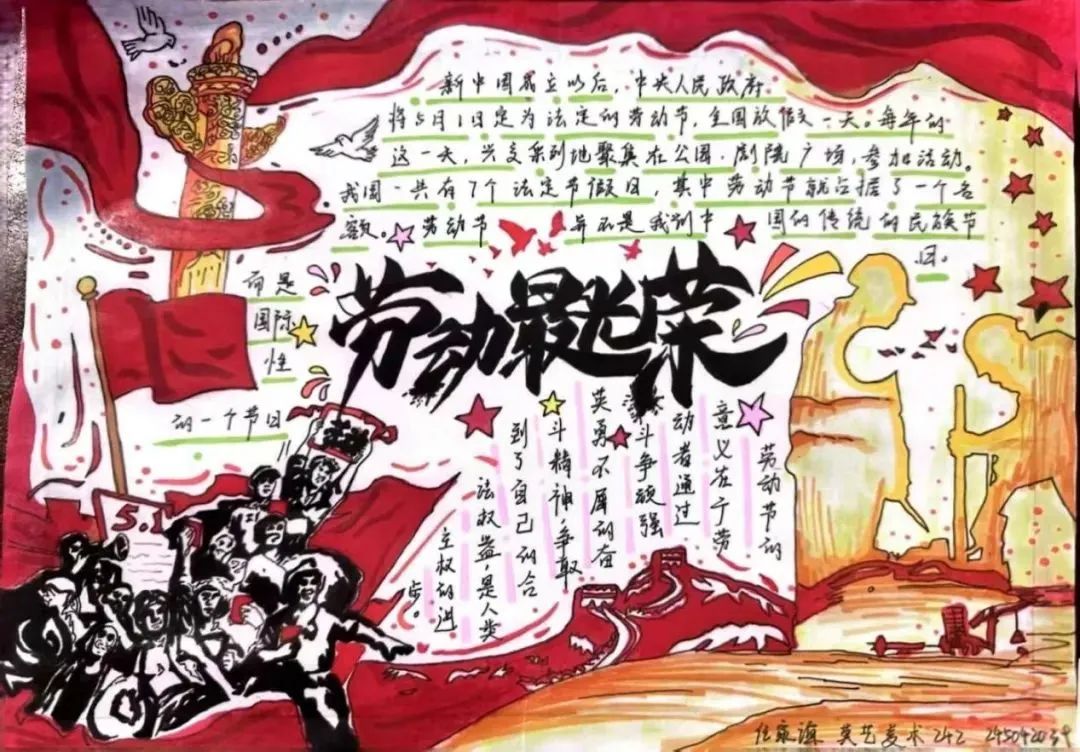 新中国成立以后,中央人民政府
将5月1日定为法定的劳动节,全国放假一天。每年的
这一天,兴交采列地聚集在公园·剧院广场,参加活动。
我国一共有7个法定节假日,其中劳动节就占据了一个名
额。劳动节 并不是我们中 国的传统的民族节
日。
而是
国际
性
的一个节日
劳动最光荣
劳动节的
意义在于劳
动者通过
斗争顽强
英勇不屈的奋
斗精神争取
到了自己的合
法权益,是人类
主权的进
步。
5.1
英艺美术242